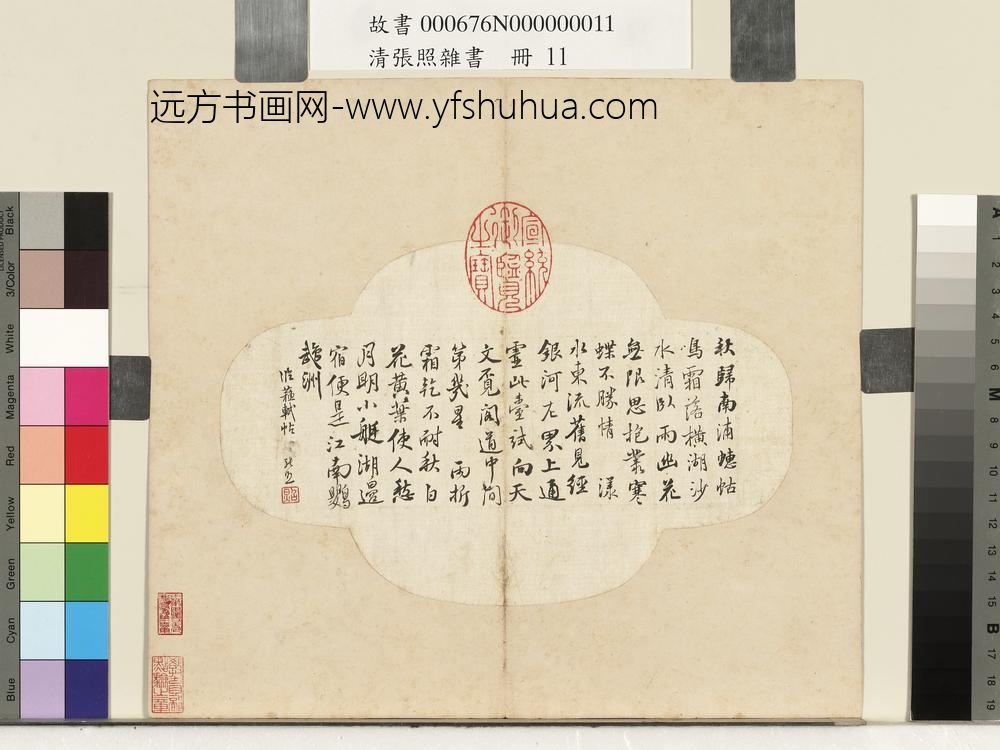 故書 000676N000000011
清張照雜書 冊 11
远方书画网-www.yfshuhua.com
宣統御覽之寶
秋歸南浦蟪蛄
鳴霜落橫湖沙
水清臥雨幽花
無限思抱叢寒
蝶不勝情 漾
水東流舊見經
銀河左界上通
靈此臺試向天
文覓閣道中間
第幾星 雨折
霜乾不耐秋白
花黃葉使人愁
月明小艇湖邊
宿便是江南鸚
鵡洲
臨蘇軾帖
照
Black
3/Color
White
Magenta
Red
Yellow
Green
Cyan
Blue
A
1
2
3
4
5
6
M
8
9
10
11
12
13
14
15
B
17
18
19